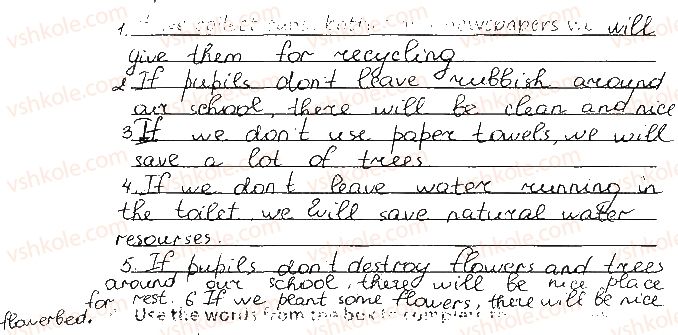 1. If we collect cans, bottles and newspapers we will
give them for recycling
2. If pupils don't leave rubbish around
our school, there will be clean and nice
3. If we don't use paper towels, we will
save a lot of trees
4. If we don't leave water running in
the toilet, we will save natural water
resourses.
5. If pupils don't destroy flowers and trees
around our school, there will be nice place
for rest. 6 If we peant some flowers, there will be nice
flowerbed.
Use the words from the box to complete